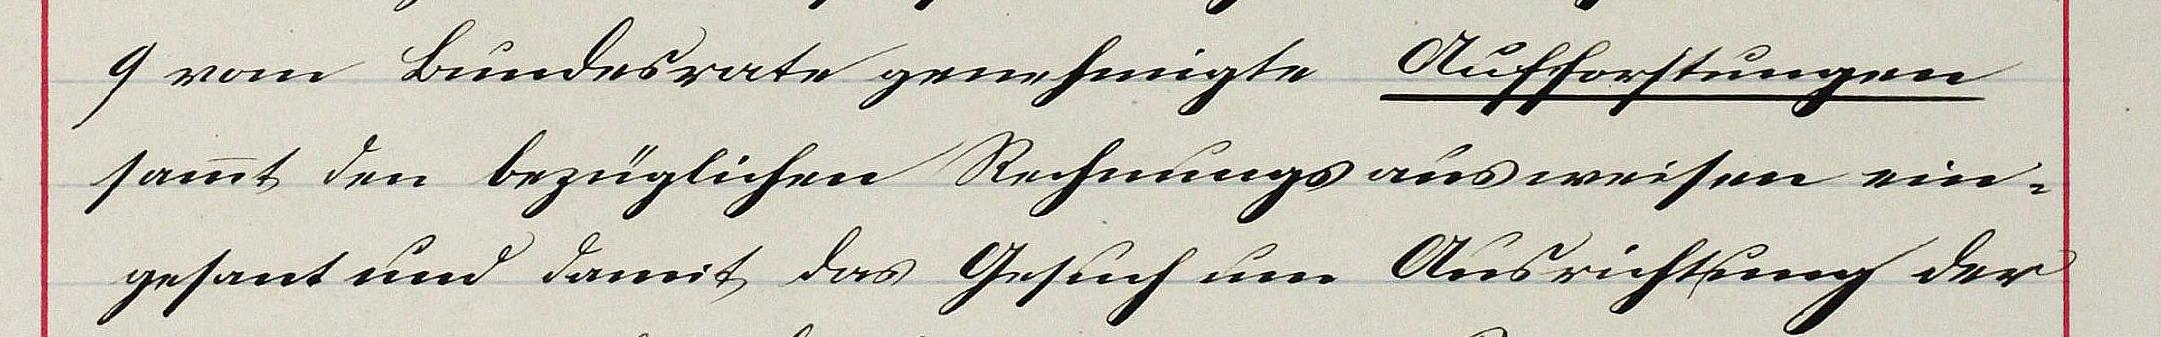 9 vom Bundesrate genehmigte Aufforstungen
sam̅t den bezüglichen Rechnungsausweisen ein-
gesant und damit das Gesuch um Ausrichtung der